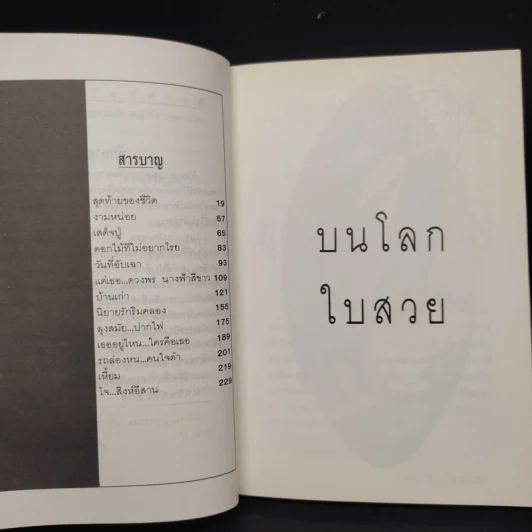 สารบาญ
สุดท้ายของชีวิต 19
งามหน่อย 57
เสด็จปู่ 65
ดอกไม้ที่ไม่อยากโรย 83
วันที่อับเฉา 93
แด่เธอ...ดวงพร นางฟ้าสีขาว 109
บ้านเก่า 121
นิยายรักริมคลอง 155
ลุงสมัย...ปากไฟ 175
เธออยู่ไหน...ใครคือเธอ 189
รถล่องหน...คนใจดำ 201
เหี้ยม 219
ใจ...สิงห์อีสาน 229
บนโลก
ใบสวย